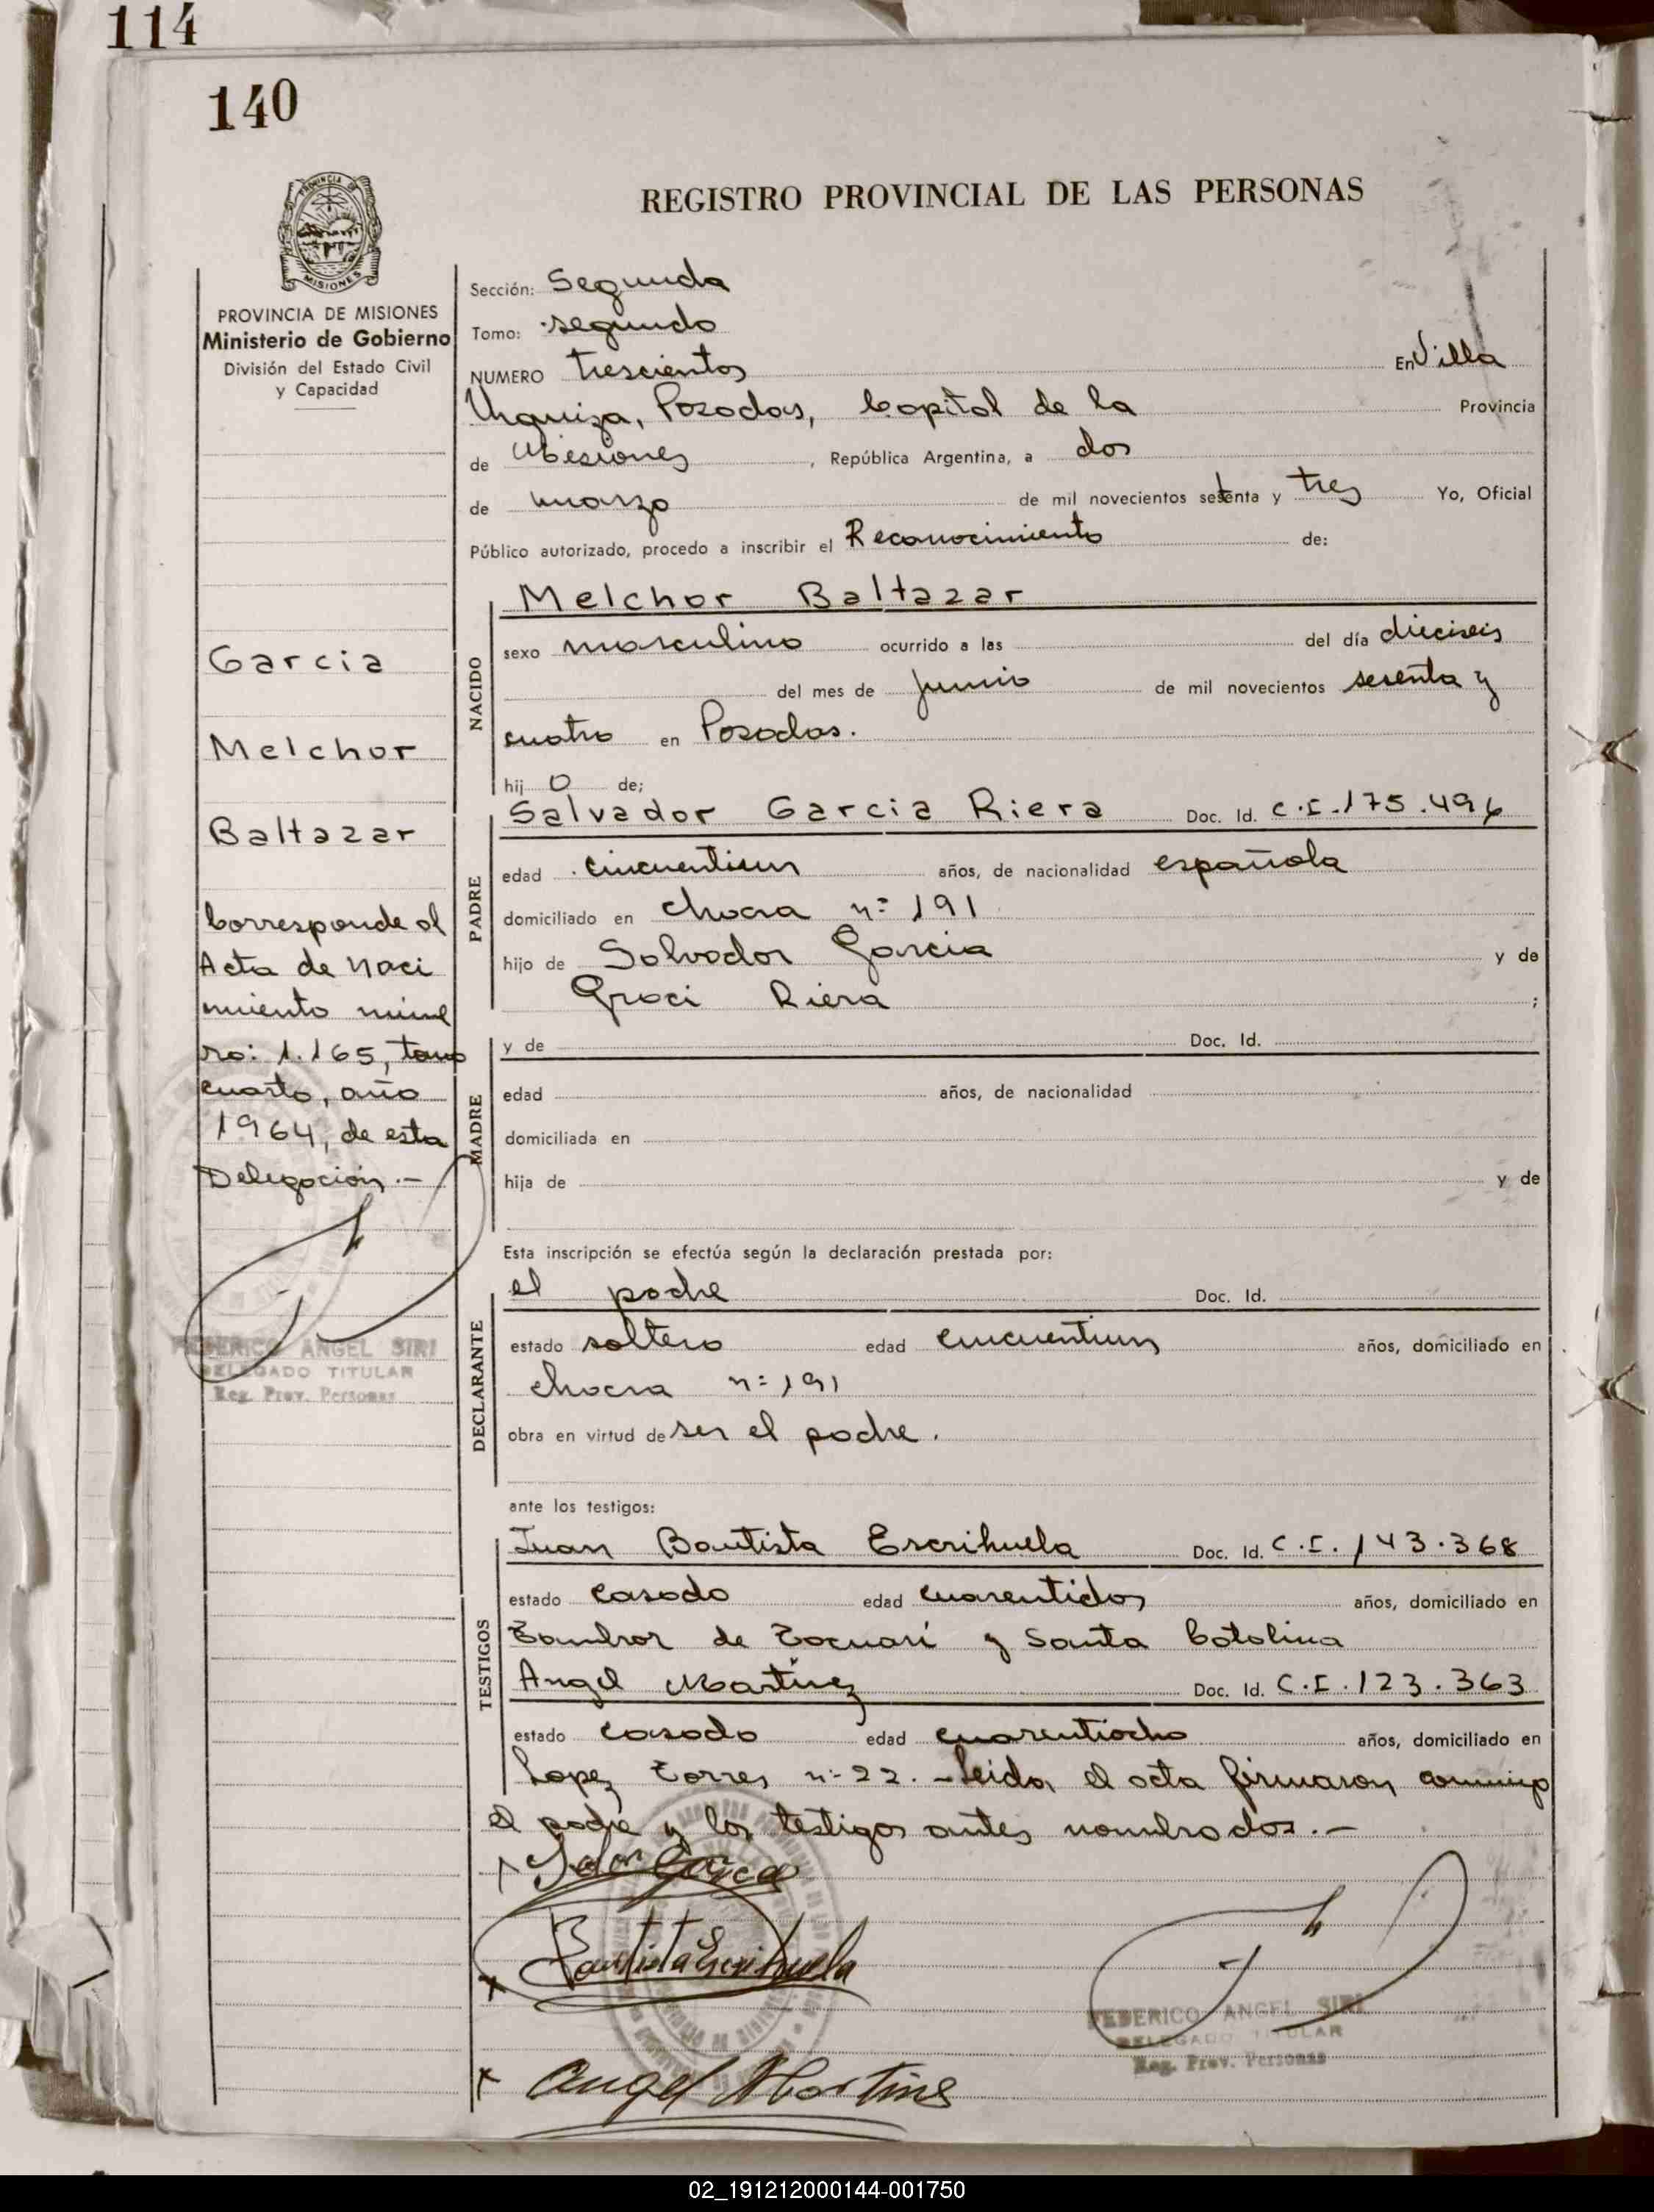 114
140
REGISTRO PROVINCIAL DE LAS PERSONAS
PROVINCIA DE MISIONES
MISIONES
PROVINCIA DE MISIONES
Ministerio de Gobierno
División del Estado Civil
y Capacidad
Garcia
Melchor
Baltazar
Corresponde al
Acta de Naci
miento núme
ro: 1.165, tomo
cuarto, año
1964, de esta
Delegación.-
FEDERICO ANGEL SIRI
DELEGADO TITULAR
Reg. Prov. Personas
Sección: Segunda
Tomo: segundo
NUMERO trescientos En Villa
Urquiza, Posadas, Capital de la Provincia
de Misiones, República Argentina, a dos
de marzo de mil novecientos setenta y tres Yo, Oficial
Público autorizado, procedo a inscribir el Reconocimiento de:
NACIDO
Melchor Baltazar
sexo masculino ocurrido a las del día dieciseis
del mes de junio de mil novecientos sesenta y
cuatro en Posadas.
hij o de;
PADRE
Salvador Garcia Riera Doc. Id. C.I. 175.496
edad cincuentiun años, de nacionalidad española
domiciliado en chacra nº 191
hijo de Salvador Garcia y de
Graci Riera ;
MADRE
y de Doc. Id.
edad años, de nacionalidad
domiciliada en
hija de y de
Esta inscripción se efectúa según la declaración prestada por:
DECLARANTE
el padre Doc. Id.
estado soltero edad cincuentiun años, domiciliado en
chacra nº 191
obra en virtud de ser el padre.
ante los testigos:
TESTIGOS
Juan Bautista Escrihuela Doc. Id. C.I. 143.368
estado casado edad cuarentidos años, domiciliado en
Tambor de Tacuarí y Santa Catalina
Angel Martinez Doc. Id. C.I. 123.363
estado casado edad cuarentiocho años, domiciliado en
Lopez Torres nº 22. - Leida el acta firmaron conmigo
el padre y los testigos antes nombrados.-
Bautista Escrihuela
Angel Martine
FEDERICO ANGEL SIRI
DELEGADO TITULAR
Reg. Prov. Personas
02_191212000144-001750